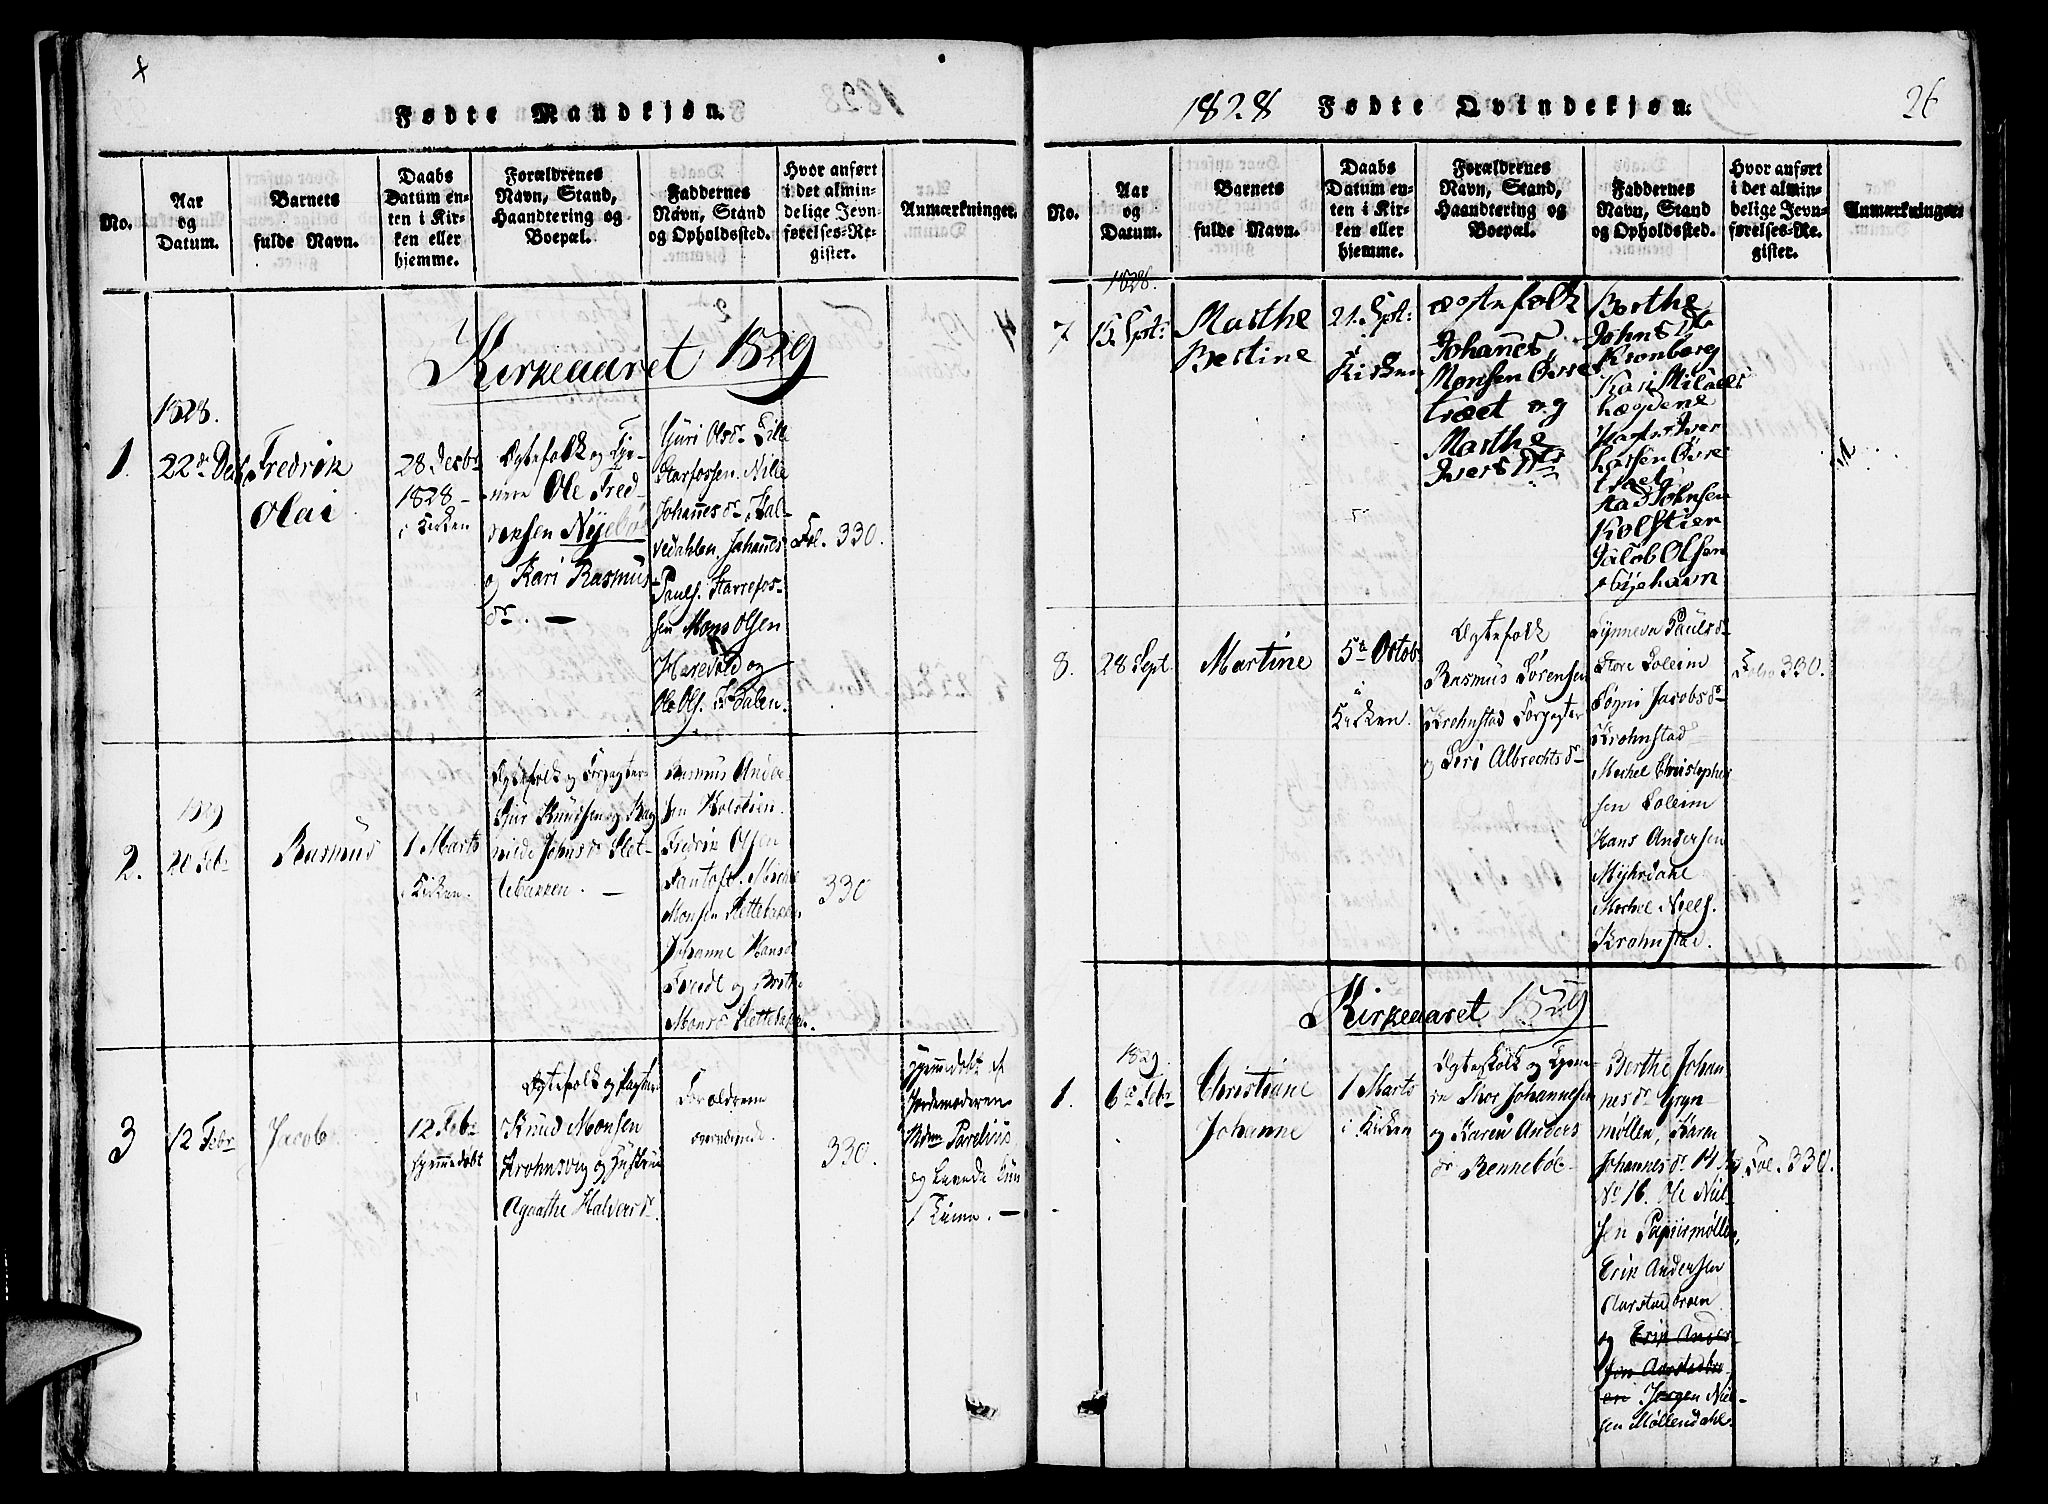 Fødte Mandkjøn.
No.
Aar
og
Datum.
Barnets
fulde Navn.
Daabs
Datum en-
ten i Kir-
ken eller
hjemme.
Forældrenes
Navn, Stand,
Haandtering og
Boepæl.
Faddernes
Navn, Stand
og Opholdssted.
Hvor anført
i det almin-
delige Jevn-
førelses-Re-
gister.
Anmærkninger.
Kirkeaaret 1829
1828.
1.
22de Decb
Fredrik
Olai
28 Decbr
1828 -
i Kirken
Ægtefolk og Tje-
nere Ole Fred-
riksen Nyebøe
og Kari Rasmus
dr. —
Guri Olsdr Lille
Starfossen. Nille
Johannesdr Hal-
vedahlen. Johannes
Pauls. Starrefos-
sen Mons Olsen
Harevold og
Ole Ols. Kdalen.
Fol. 330.
2.
1829
20 Febr
Rasmus
1 Marts
i Kirken.
Ægtefolk og Forpagter
Siur Knudsen og Rag
nilde Johnsdr Slet-
tebakken. —
Rasmus Ander-
sen Kolstien
Fredrik Olsen
Fantoft. Michel
Monsen Slettebakken
Johanne Hansdr
Tvedt og Brithe
Monsdr Slettebakken.
330
3
12 Febr
Jacob
12 Febr
hjemmedøbt
Ægtefolk og Pagter
Knud Monsen
Krohnsvig og Hustrue
Agaathe Halversdr.
Forældrene
330.
hjemmedøbt af
Jordemoderen
Mdm Parelius
og levede kun
1 Time. —
1828 Fødte Qvindekjøn.
26
No.
Aar
og
Datum.
Barnets
fulde Navn.
Daabs
Datum en-
ten i Kir-
ken eller
hjemme.
Forældrenes
Navn, Stand,
Haandtering og
Boepæl.
Faddernes
Navn, Stand
og Opholdssted.
Hvor anført
i det almin-
delige Jevn-
førelses-Re-
gister.
Anmærkninger.
1828.
7
15 Sept:
Marthe
Bertine
21. Spt:
i
Kirken
ægtefolk
Johanes
Monsen Øvre
træet og
Marthe
Ivers Dtr
Berthe
Johns Dtr
Kronborg
Kari
Iver
Larsen Øvre
træet
Johnsen
Kolstien
Jacob Olsen
8.
28 Sept.
Martine
5te Octob
i
Kirken.
Ægtefolk
Rasmus Sørensen
Krohnstad Forpagter
og Albrechtsdr
Synneva Paulsdr
Store Soleim
Søgni Jacobsdr
Krohnstad
Mechel Christopher
sen Soleim
Hans Andersen
Myhrdahl
Mechel Niels.
Krohnstad.
Folio 330.
Kirkeaaret 1829
1829.
1.
6te Febr
Christiane
Johanne
1 Marts
i Kirken
Ægtefolk og Tjene
re Johannesen
og Karen Anders
dr Rennebøe.
Berthe Johan
nesdr Gryn-
møllen, Karen
Johannesdr 14
No 16. Ole Niel-
sen Papiirmøllen,
Erik Andersen
Aarstadbroen
og Erik Ander-
sen Aarstadbro
en. Jørgen Niel-
sen Møllendahl.
Fol. 330.